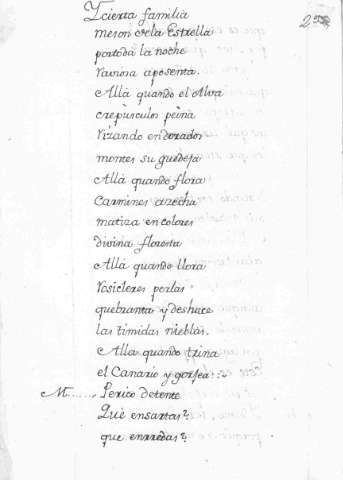 Y cierta familia
meson de la Estrella
por toda la noche
aposenta.
Allà quando el Alva
crepùsculos peina
Rizando en dorados
montes su guedeja
Allà quando flora
Carmines
matiza en colores
divina floresta
Allà quando llora
Rosicleres perlas
quebranta y deshace
las timidas nieblas.
Alla quando trina
el Canario y gorjea:~
M...... Perico detente
Què ensartas?
que enredas?